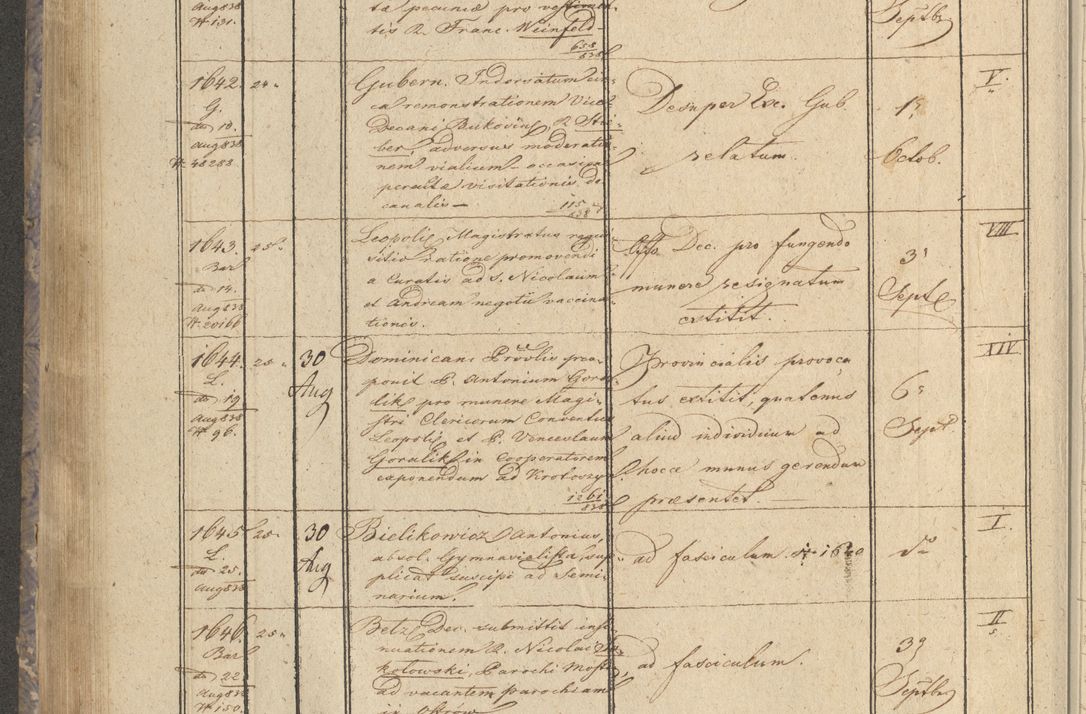 Aug 838
N. 131.
tis R. Franc. Weinfeld
658/838
Septbr
1642.
G.
dto 10.
Aug 838
N. 48288
24
Gubern. Indorsatum cir-
ca remonstrationem Vice
Decani Bukovins, R. Stri-
ber, adversus moderatio-
nem vialium occasione
peractae visitationis de-
canalis —
115/838
Desuper Exc. Gub.
relatum.
1
Octob.
V.
1643.
Bar
dto 14.
Aug 838
N. 20166
25
Leopolis Magistratus requi-
sitio ratione promovendi
a Curatis ad S. Nicolaum
et Andream negotii vaccina-
tionis.
Offo Dec. pro fungendo
munere resignatum
extitit.
3
Septb
VIII
1644.
L.
dto 19
Aug 838
N. 96.
25
30
Aug
Dominican. Provlis prae-
ponit P. Antonium Gora-
lik pro munere Magi-
stri Clericorum Conventus
Leopolis et P. Venceslaum
Goralik in Cooperatorem
exponendum ad Krotoszyn
1261/838
Provincialis provoca-
tus extitit, quatenus
aliud individuum ad
hocce munus gerendum
praesentet. —
6
Sept.
XIV
1645
L.
dto 25.
Aug 838
25
30
Aug
Bielikowicz Antonius,
absol. Gymnasialista, sup-
plicat suscipi ad Semi-
narium.
ad fasciculum N 1640
dto
I.
1646.
Bar
dto 22.
Aug 838
N. 150.
25
Betz. Dec. submittit insi-
nuationem R. Nicolai
kotowski, Parochi Mosty
ad vacantem parochiam
in Okrów
ad fasciculum.
3
Septbr
II